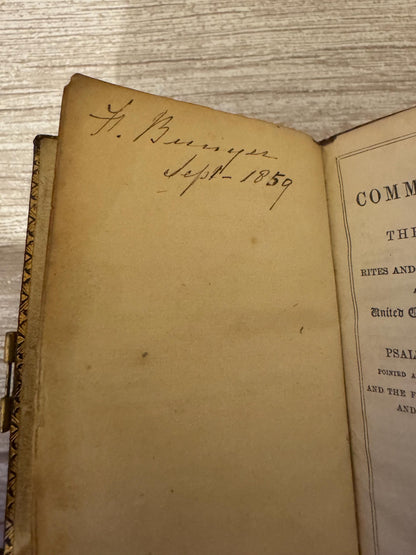 Sept - 1859
COMM
THE
RITES AND
A
United C
PSAL
POINTED A
AND THE F
AND